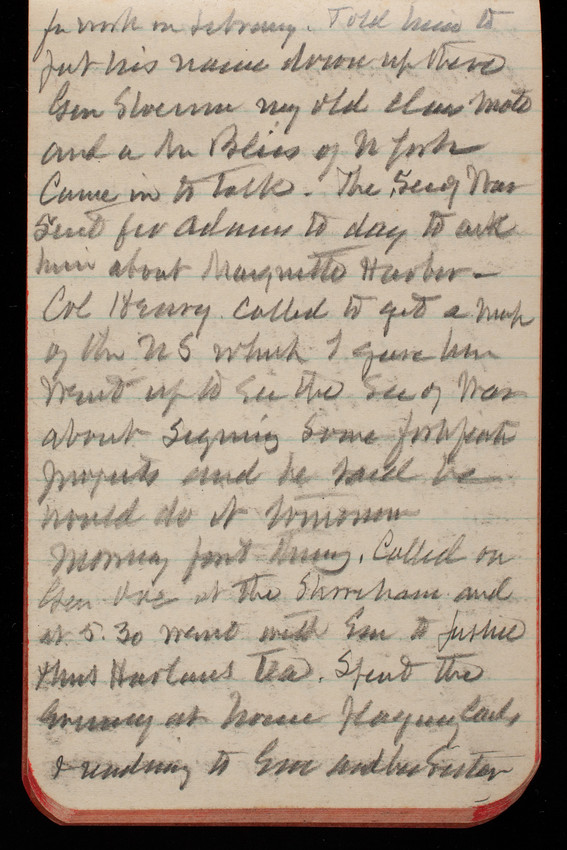 for work in February. Told him to
put his name down up there
Gen my old class mate
and a Mr Bliss of N York
Came in to talk. The Sec of War
Sent for Adams to day to ask
him about Marquette Harbor -
Col Henry called to get a map
of the US which I gave him
Went up to see the Sec of War
about signing some
projects and he said he
would do it tomorrow
Morning first thing. Called on
Gen at the Shoreham and
at 5.30 went with Em to Justice
Harlans tea. Spent the
evening at home Playing Cards
& reading to Em and her Sister